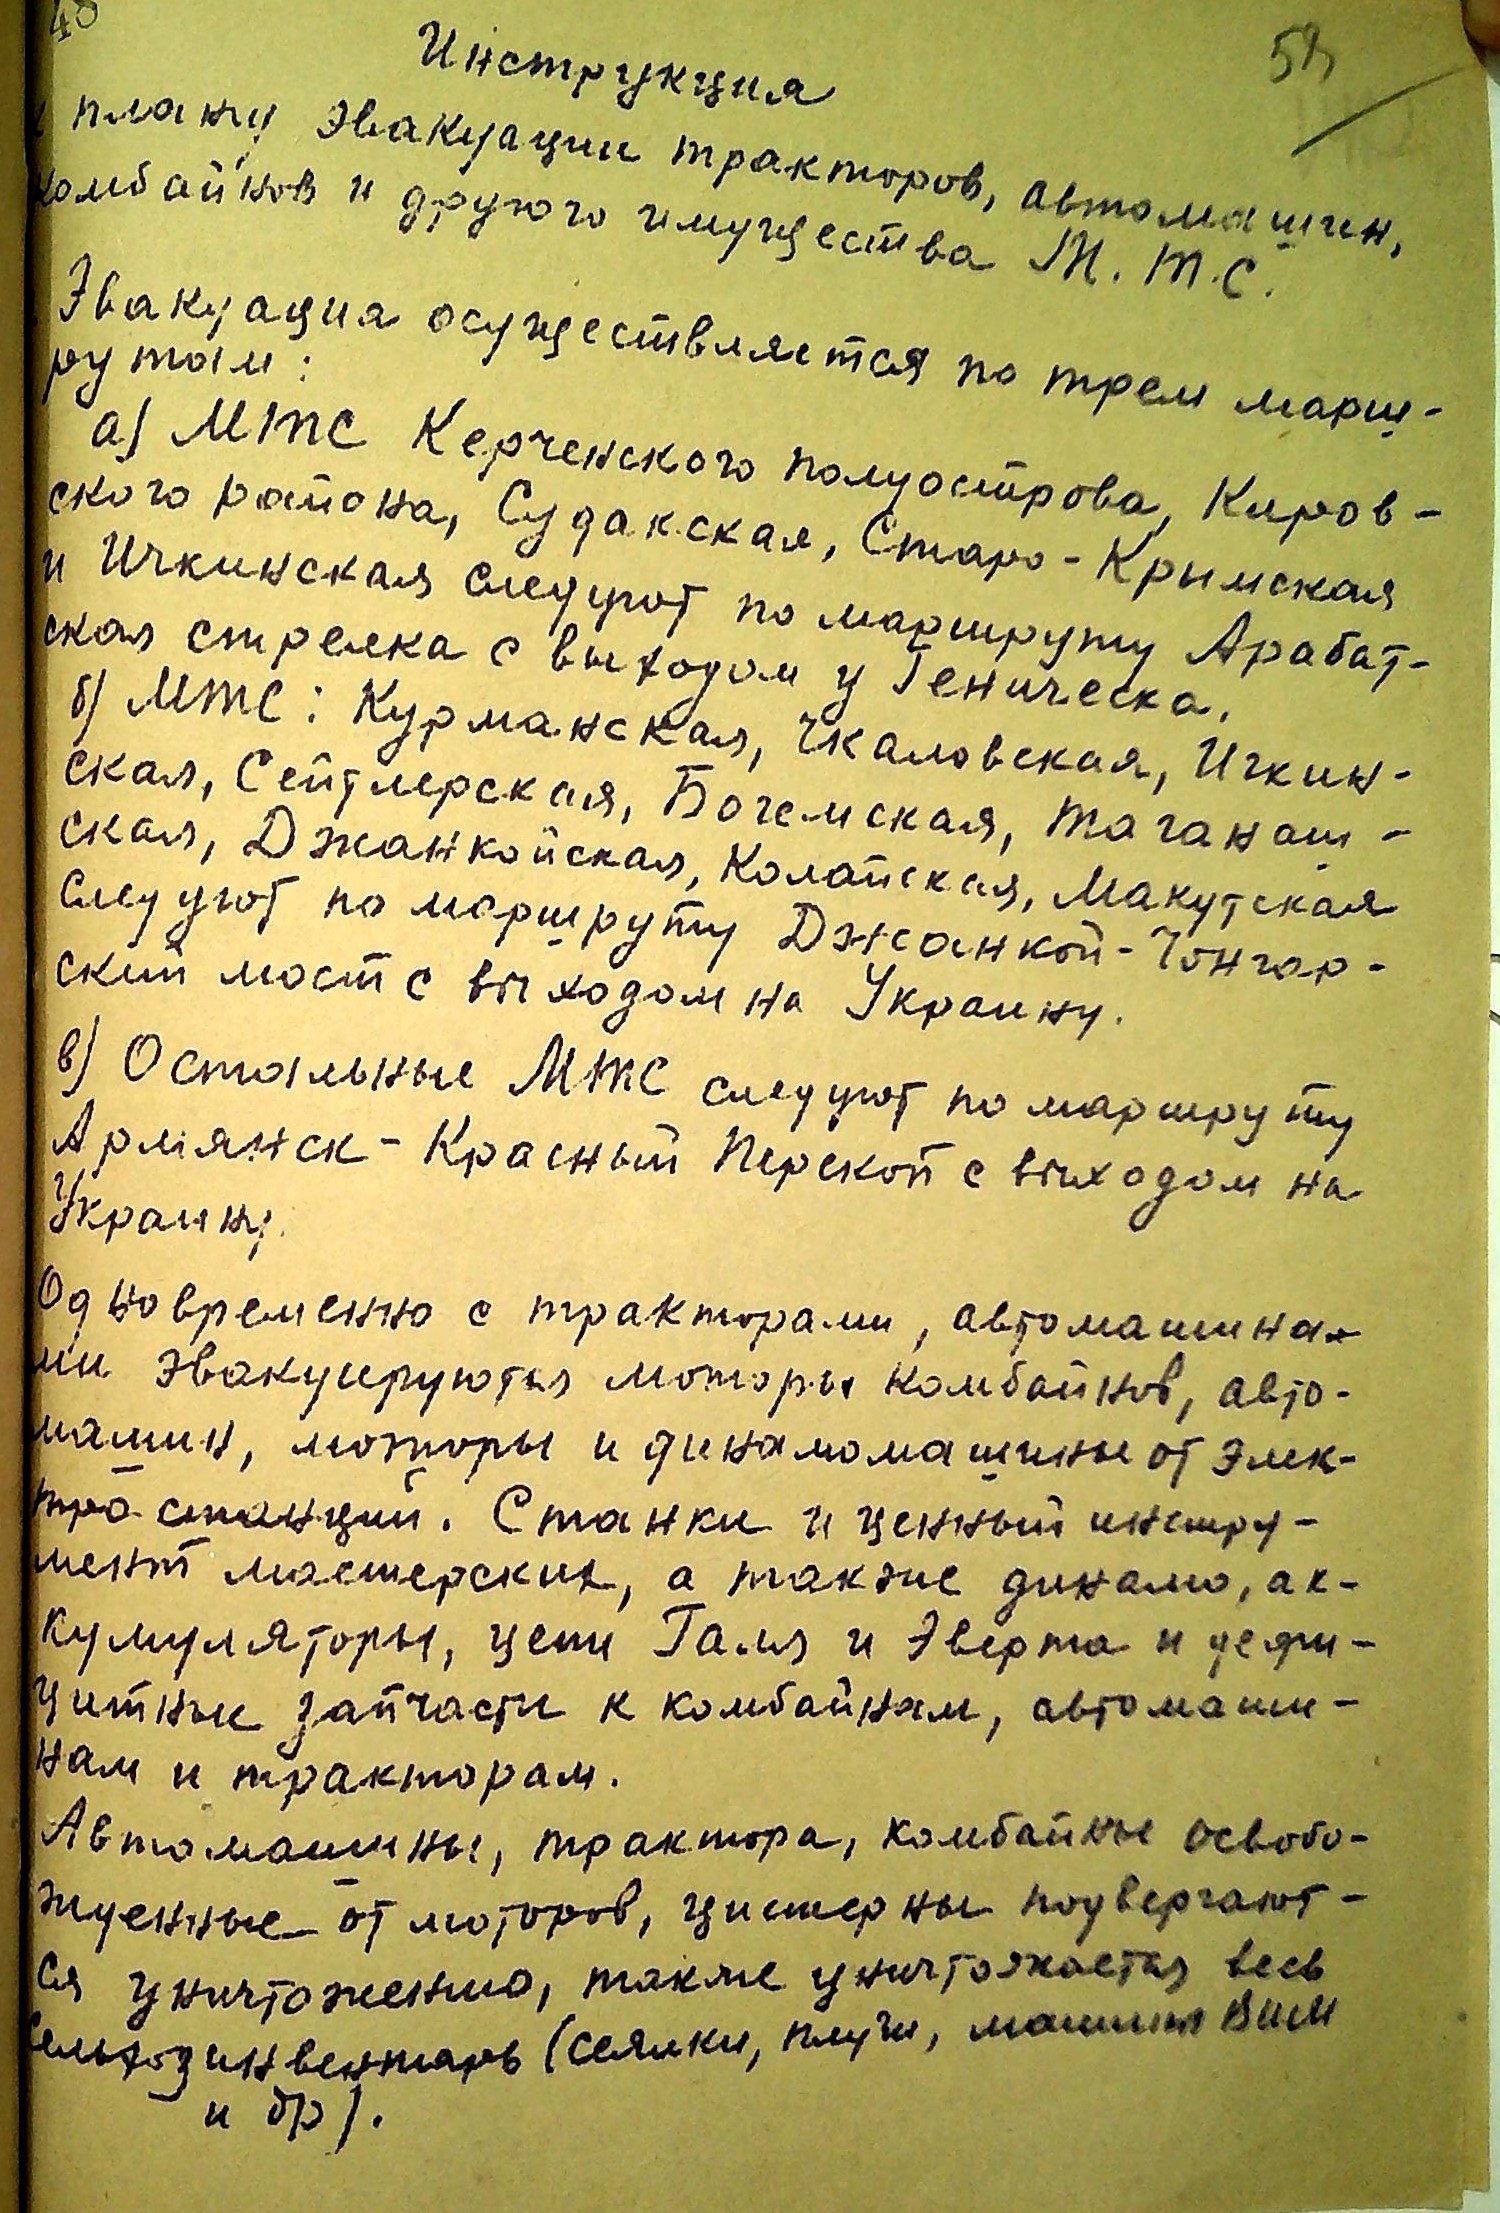 48
Инструкция
к плану эвакуации тракторов, автомашин,
комбайнов и другого имущества М.Т.С.
Эвакуация осуществляется по трем марш-
рутам:
а) МТС Керченского полуострова, Киров-
ского района, Судакская, Старо-Крымская
и Ичкинская следуют по маршруту Арабат-
ская стрелка с выходом у Геническа.
б) МТС: Курманская, Чкаловская, Ичкин-
ская, Сейтлерская, Богемская, Таганаш-
ская, Джанкойская, Колайская, Макутская
следуют по маршруту Джанкой-Чонгар-
ский мост с выходом на Украину.
в) Остальные МТС следуют по маршруту
Армянск-Красный Перекоп с выходом на
Украину.
Одновременно с тракторами, автомашина-
ми эвакуируются моторы комбайнов, авто-
машин, моторы и динамомашины от элек-
тростанций. Станки и ценный инстру-
мент мастерских, а также динамо, ак-
кумуляторы, цепи Галя и Эверта и дефи-
цитные запчасти к комбайнам, автомаши-
нам и тракторам.
Автомашины, трактора, комбайны освобо-
жденные от моторов, цистерны подвергают-
ся уничтожению, также уничтожается весь
сельхозинвентарь (сеялки, плуги, машины ВИМ
и др).